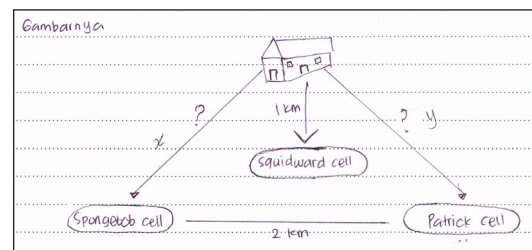 Gambarnya
?
1 km
? y
x
Squidward cell
Spongebob cell
2 km
Patrick cell